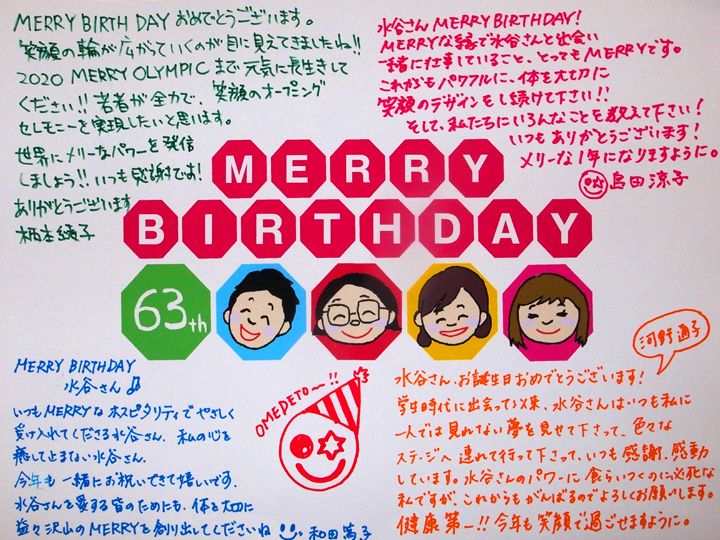 MERRY BIRTH DAY おめでとうございます。
笑顔の輪が広がっていくのが目に見えてきましたね!!
2020 MERRY OLYMPIC まで元気に長生きして
ください!! 若者が全力で、笑顔のオープニング
セレモニーを実現したいと思います。
世界にメリーなパワーを発信
しましょう!! いつも感謝です!
ありがとうございます
柄本綾子
水谷さん MERRY BIRTHDAY!
MERRYな縁で水谷さんと出会い
一緒に仕事していること、とってもMERRYです。
これからもパワフルに、体を大切に
笑顔のデザインをし続けて下さい!!
そして、私たちにいろんなことを教えて下さい!
いつもありがとうございます!
メリーな1年になりますように。
島田涼子
MERRY
BIRTHDAY
63th
MERRY BIRTHDAY
水谷さん
いつもMERRYなホスピタリティでやさしく
受け入れてくださる水谷さん、私の心を
癒して止まない水谷さん。
今年も一緒にお祝いできて嬉しいです。
水谷さんを愛する皆のためにも、体を大切に
益々沢山のMERRYを創り出してくださいね
和田篤子
OMEDETO~!!
河野通子
水谷さん、お誕生日おめでとうございます!
学生時代に出会って以来、水谷さんはいつも私に
一人では見れない夢を見せて下さって、色々な
ステージへ連れて行って下さって、いつも感謝、感動
しています。水谷さんのパワーに食らいつくのに必死な
私ですが、これからもがんばるのでよろしくお願いします。
健康第一!! 今年も笑顔で過ごせますように。